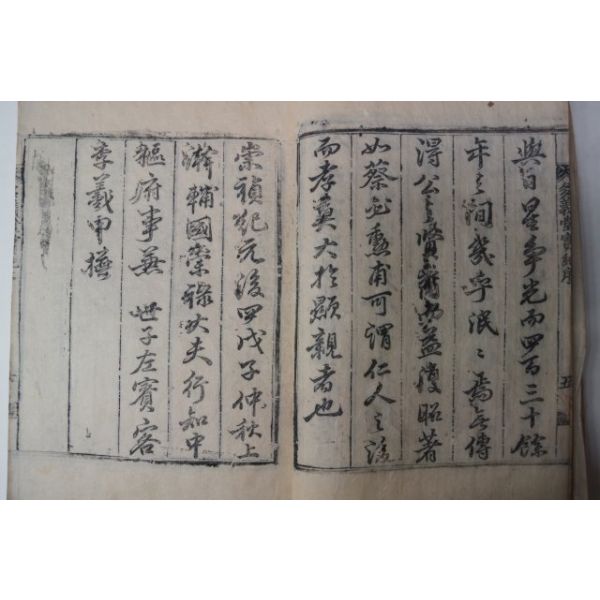 與日星爭光而四百三十餘
年之間幾乎泯〻焉無傳
得公之賢裔而益復昭著
如蔡 勳甫可謂仁人之後
而孝莫大於顯親者也
崇禎紀元後四戊子仲秋上
澣輔國崇祿大夫行知中
樞府事兼 世子左賓客
李羲甲撰
義堂實紀序
五